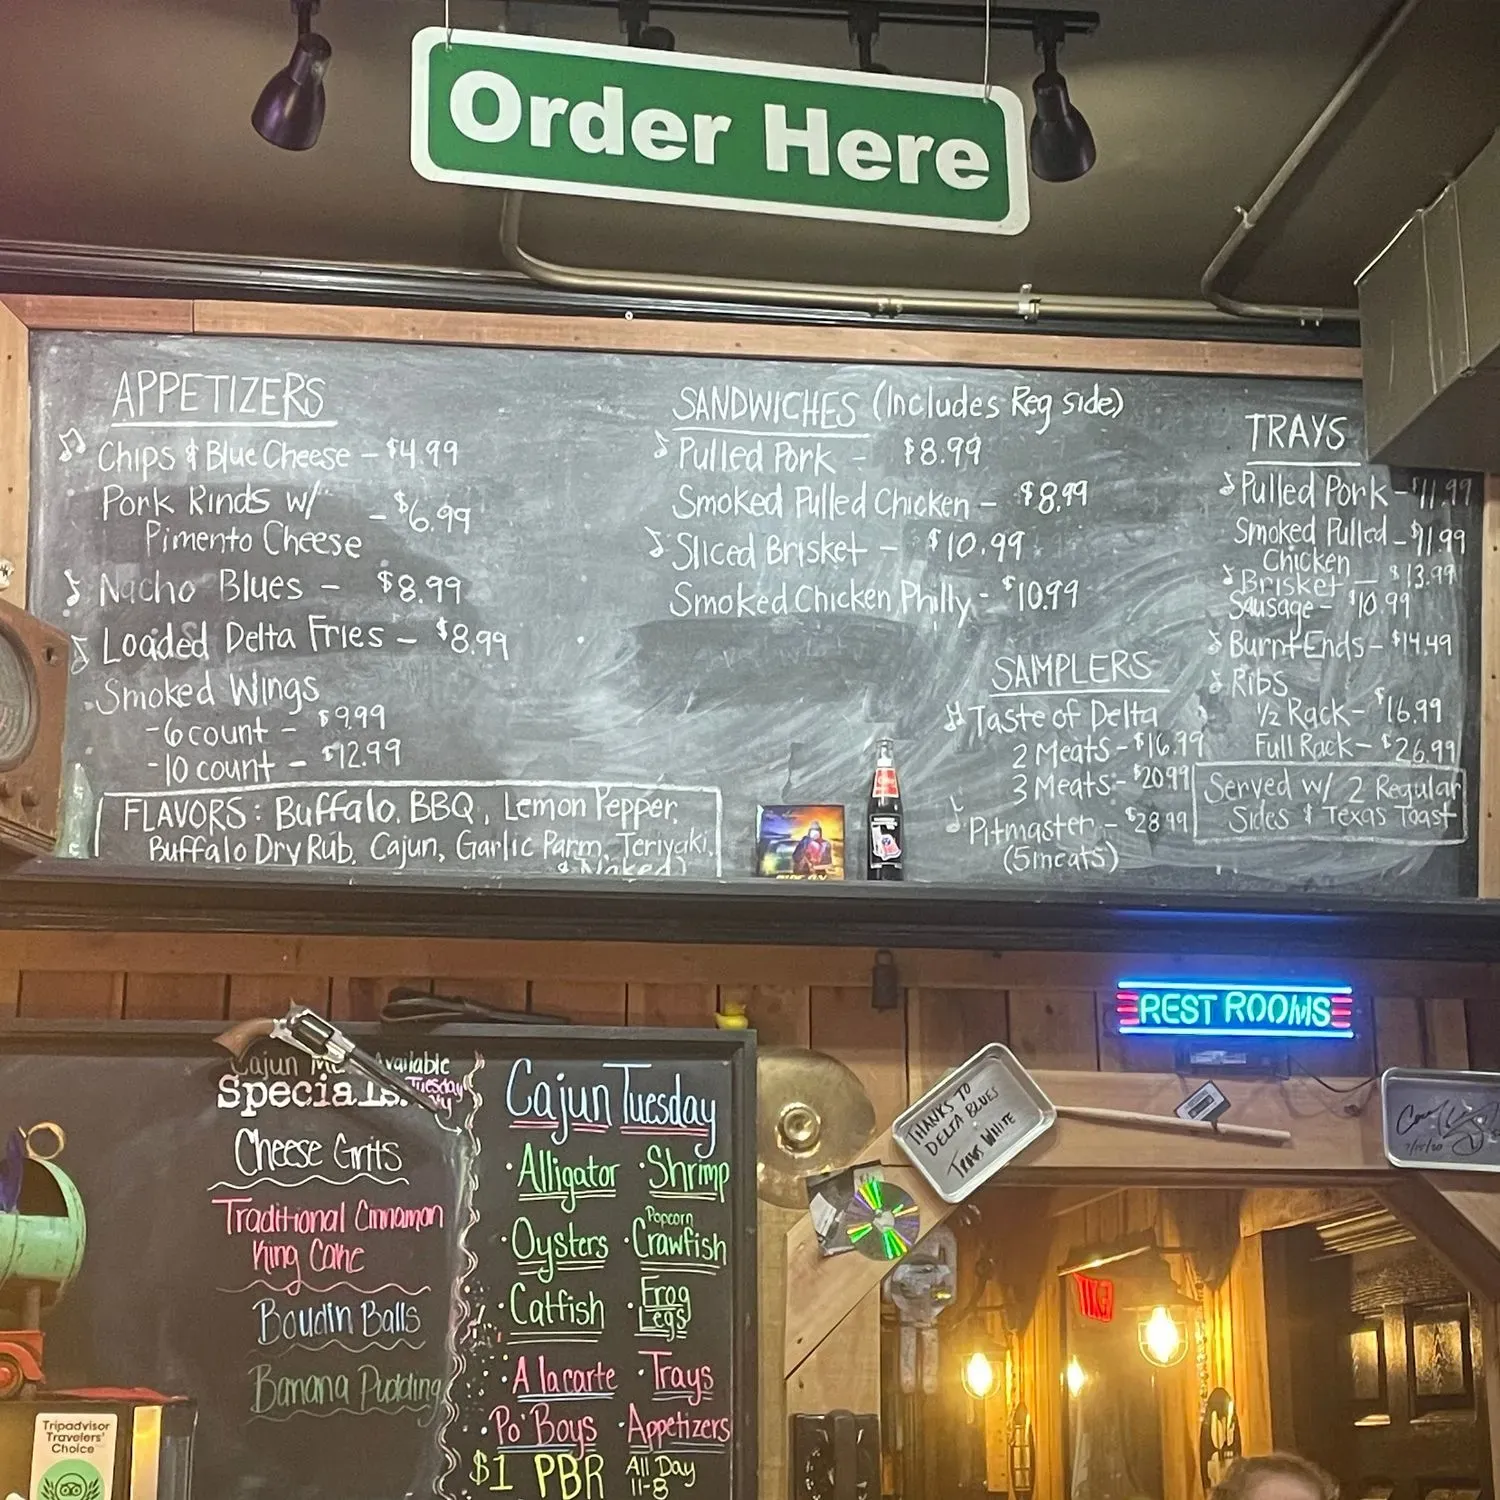 Order Here
APPETIZERS
Chips & Blue Cheese - $4.99
Pork Rinds w/ - $6.99
Pimento Cheese
Nacho Blues - $8.99
Loaded Delta Fries - $8.99
Smoked Wings
-6 count - $9.99
-10 count - $12.99
FLAVORS: Buffalo, BBQ, Lemon Pepper,
Buffalo Dry Rub, Cajun, Garlic Parm, Teriyaki,
& Naked)
SANDWICHES (Includes Reg side)
Pulled Pork - $8.99
Smoked Pulled Chicken - $8.99
Sliced Brisket - $10.99
Smoked Chicken Philly - $10.99
SAMPLERS
Taste of Delta
2 Meats - $16.99
3 Meats - $20.99
Pitmaster - $28.99
(5 meats)
TRAYS
Pulled Pork - $11.99
Smoked Pulled - $11.99
Chicken
Brisket - $13.99
Sausage - $10.99
Burnt Ends - $14.49
Ribs
1/2 Rack - $16.99
Full Rack - $26.99
Served w/ 2 Regular
Sides & Texas Toast
REST ROOMS
Cajun Available
Specials Tuesday
Cheese Grits
Traditional Cinnamon
King Cake
Boudin Balls
Banana Pudding
Cajun Tuesday
·Alligator ·Shrimp
·Oysters ·Popcorn
Crawfish
·Catfish ·Frog
Legs
·A lacarte ·Trays
·Po' Boys ·Appetizers
$1 PBR All Day
11-8
THANKS TO
DELTA BLUES
7/15/20
Tripadvisor
Travelers'
Choice